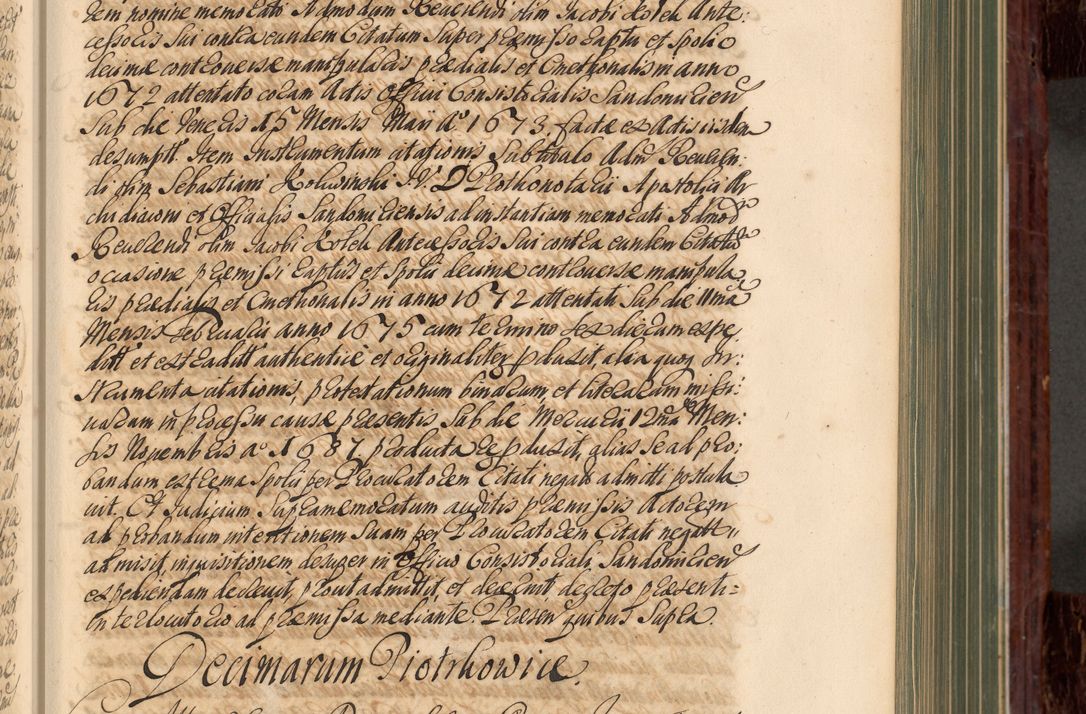 dem nomine memorato Admodum Reverendi olim Jacobi Kołek Ante:
cessoris sui contra eundem Citatum super præmisso raptu et spolio
decimæ controversæ manipularis prædialis et Cmethonalis in anno
1672 attentato coram Actis Officii Consistorialis Sandomirien
Sub die Veneris 15 Mensis Maii aº 1673. factæ ex Actis iisdem
desumptt. Item Instrumentum citationis sub titulo Adm Reveren:
di olim Sebastiani Kolwinski JV. D Prothonotarii Apostolici Ar
chidiaconi et Officialis Sandomiriensis ad instantiam memorati Admod
Reverendi olim Jacobi Kołek Antecessoris sui contra eundem Citatũ
occasione præmissi raptus et spolii decimæ controversæ manipula
ris prædialis et Cmethonalis in anno 1672 attentati sub die 11ma
Mensis Februarii anno 1675 cum termino sex dierum expe:
ditt et extraditt authenticè et originaliter pduxit, alia quoq In:
strumenta citationis, protestationum binarum, et literarum missi:
varum in processu causæ præsentis, sub die Mercurii 12ma Men:
sis Novembris aº 1687. producta repduxit, alias se ad pro:
bandum extrema spolii per Procuratorem Citati negata admitti postula
vit. Et Judicium Supramemoratum auditis præmissis Actorem
ad probandum intentionem suam per Procuratorem Citati negatt,,
admisit, inquisitionem desuper in Officio Consistoriali Sandomirien
expediendam decrevit, prout admittit, et decernit decreto præsenti=
Interlocutorio ad præmissa mediante. Præsen quibus Supra.
Decimarum Piotrkowice.